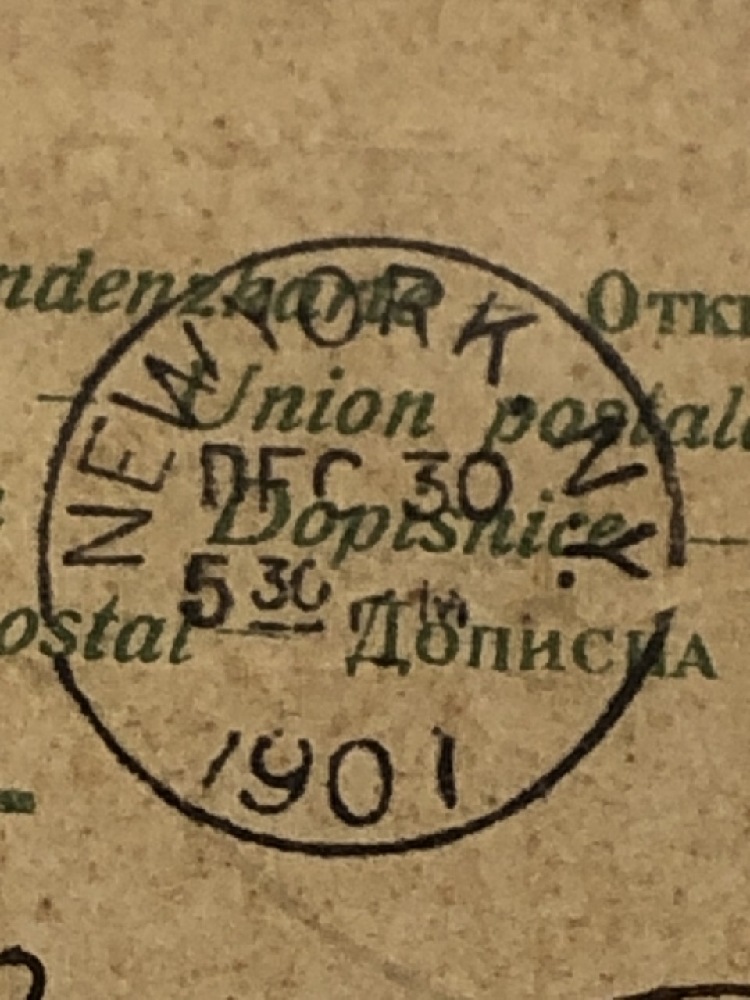 ndenzkarte Откр
NEW YORK, N.Y.
Union postale
DEC 30
Dopisnice
5 30
ostal Дописна
1901